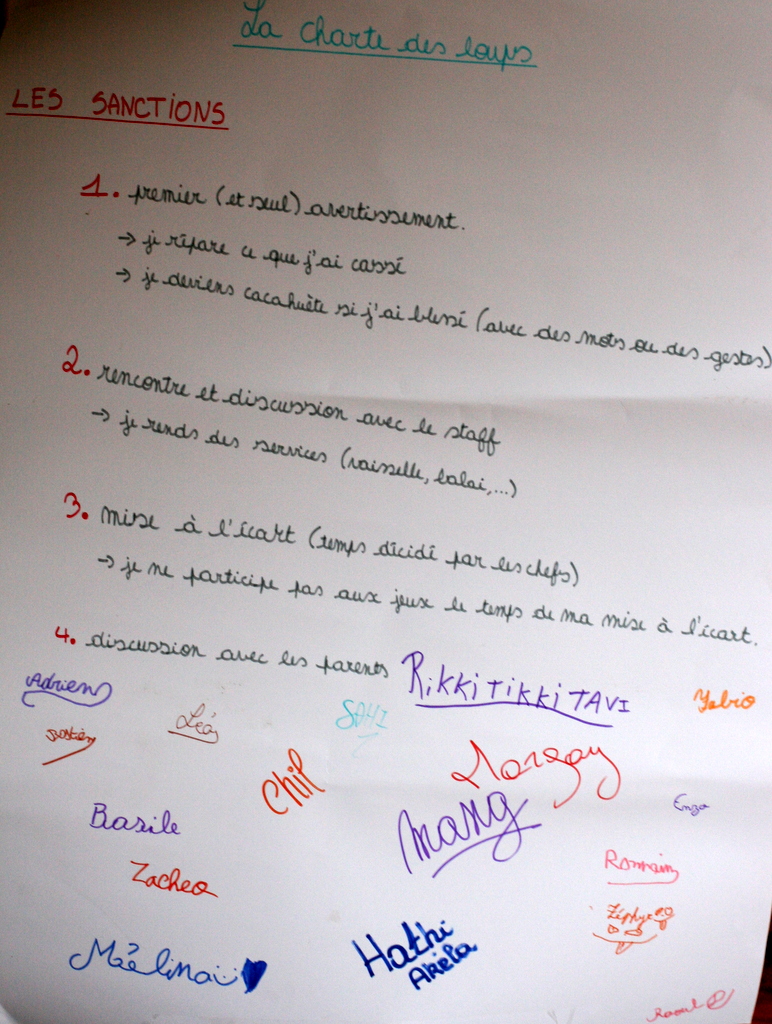 La charte des loups
LES SANCTIONS
1. premier (et seul) avertissement.
→ je répare ce que j'ai cassé
→ je deviens cacahuète si j'ai blessé (avec des mots ou des gestes)
2. rencontre et discussion avec le staff
→ je rends des services (vaisselle, balai,...)
3. mise à l'écart (temps décidé par les chefs)
→ je ne participe pas aux jeux le temps de ma mise à l'écart.
4. discussion avec les parents
RIKKI TIKKI TAVI
Adrien
Léo
SAHI
Yabio
Bastien
Chip
Margay
Enzo
Basile
Mang
Zacheo
Romain
Zéphyr
Maélina
Hathi
Akela
Raoul